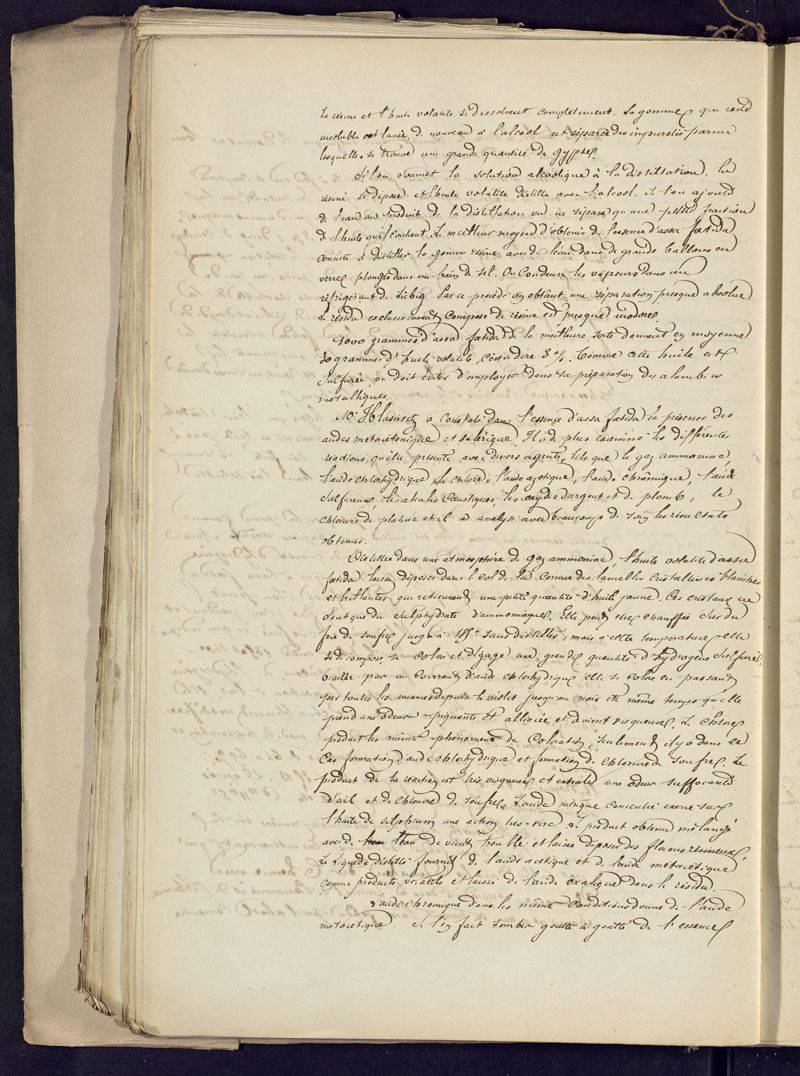 la résine et l'huile volatile se dissolvent complètement. La gomme qui reste
insoluble est lavée de nouveau à l'alcool et séparée des impuretés parmi
lesquelles se trouve une grande quantité de gypse.
Si l'on soumet la solution alcoolique à la distillation, la
résine se dépose et l'huile volatile distille avec l'alcool. Si l'on ajoute
de l'eau au produit de la distillation on ne sépare qu'une petite fraction
de l'huile qu'il contient. Le meilleur moyen d'obtenir de l'essence d'assa foetida
consiste à distiller la gomme résine avec de l'eau dans de grands ballons en
verre plongés dans un bain de sel. On condense les vapeurs dans un
réfrigérant de Liebig. Par ce procédé on obtient une séparation presque absolue
le résidu exclusivement composé de résine est presque inodore.
1000 grammes d'assa foetida de la meilleure sorte donnent en moyenne
30 grammes d'huile volatile, c'est à dire 3%. Comme cette huile est
sulfurée, on doit éviter d'employer dans sa préparation des alambics
métalliques.
Mr Hlasiwetz a constaté dans l'essence d'assa foetida la présence des
acides métacétonique et valérique. Il a de plus examiné les différentes
réactions qu'elle présente avec divers agents, tels que le gaz ammoniac,
l'acide chlorhydrique, le chlore, l'acide azotique, l'acide chromique, l'acide
sulfureux, les alcalis caustiques, les oxydes d'argent et de plomb, le
chlorure de platine et il a analysé avec beaucoup de soin les résultats
obtenus.
Distillée dans une atmosphère de gaz ammoniac l'huile volatile d'assa
foetida laissa déposer dans le col de la cornue des lamelles cristallines blanches
et brillantes qui retiennent une petite quantité d'huile jaune. Ces cristaux ne
sont que du sulphydrate d'ammoniaque. Elle peut être chauffée sur du
foie de soufre jusqu'à sans distiller, mais à cette température elle
se décompose se colore et dégage une grande quantité d'hydrogène sulfuré.
traitée par un courrant d'acide chlorhydrique elle se colore en passant
par toutes les nuances depuis le violet jusqu'au noir en même temps qu'elle
prend une odeur piquante et alliacée et devient visqueuse. Le chlore
produit les mêmes phénomènes de coloration, seulement il y a dans ce
cas formation d'acide chlorhydrique et formation de chlorure de soufre. Le
produit de la réaction est très visqueux et exhale une odeur suffocante
d'ail et de chlorure de soufre. L'acide nitrique concentré exerce sur
l'huile de silphium une action très vive. Le produit obtenu mélangé
avec de l'eau devient trouble et laisse déposer des flocons résineux.
Le liquide distillé fournit de l'acide acétique et de l'acide métacétique
comme produits volatils et laisse de l'acide oxalique dans le résidu.
L'acide chromique dans les mêmes conditions donne de l'acide
métacétique. Si l'on fait tomber goutte à goutte de l'essence